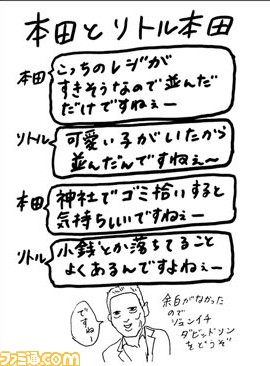 本田とリトル本田
本田
こっちのレジが
すきそうなので並んだ
だけですねぇー
リトル
可愛い子がいたから
並んだんですねぇ〜
本田
神社でゴミ拾いすると
気持ちいいですねぇー
リトル
小銭とか落ちてること
よくあるんですよねぇー
ですねー
余白がなかった
ので
ジョンイチ
ダビッドソン
をどうぞ
ファミ通.com